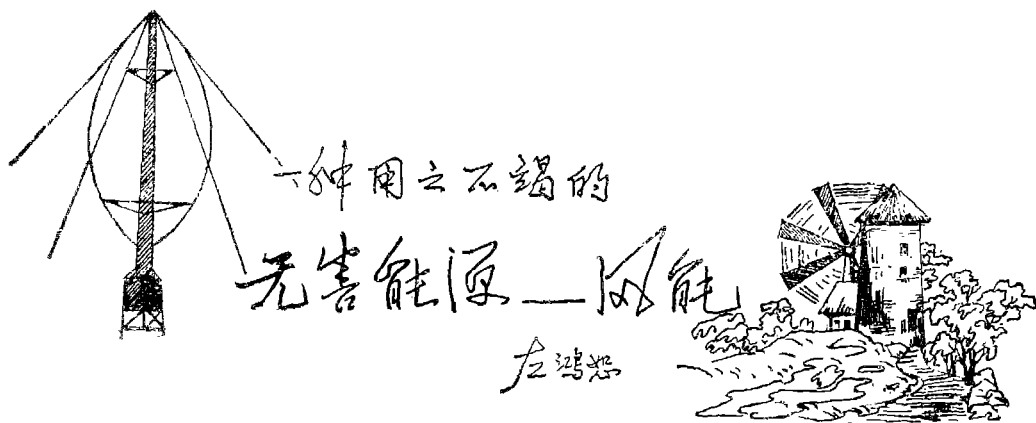 一种用之不竭的
无害能源——风能
左鸿恕